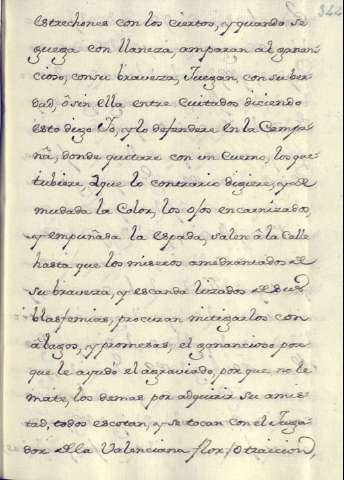 342
estrechones con los ciertos, y quando se
guega con llaneza, amparan al ganan-
cioso, con su braveza, Juegan, con su ber-
dad, ô sin ella entre Cuitados diciendo
esto digo Yo, y lo defendere en la Campi-
ñâ, donde quitare con un Cuerno, los que
tubiere, âque lo contrario digere, y de
mudada la Color, los ojos encarnizados,
y empuñada la espada, salen â la Calle
hasta que los miseros amedrantados de
su braveza, y escandalizados de sus
blasfemias, procuran mitigarlos con
alagos, y promesas, el ganancioso por
que le ayudo el agraviado, por que no le
mate, los demas por adquirir su amis-
tad, todos escotan, y se tocan con el Juga-
dor de la Valenciana flor, / o traiccion,